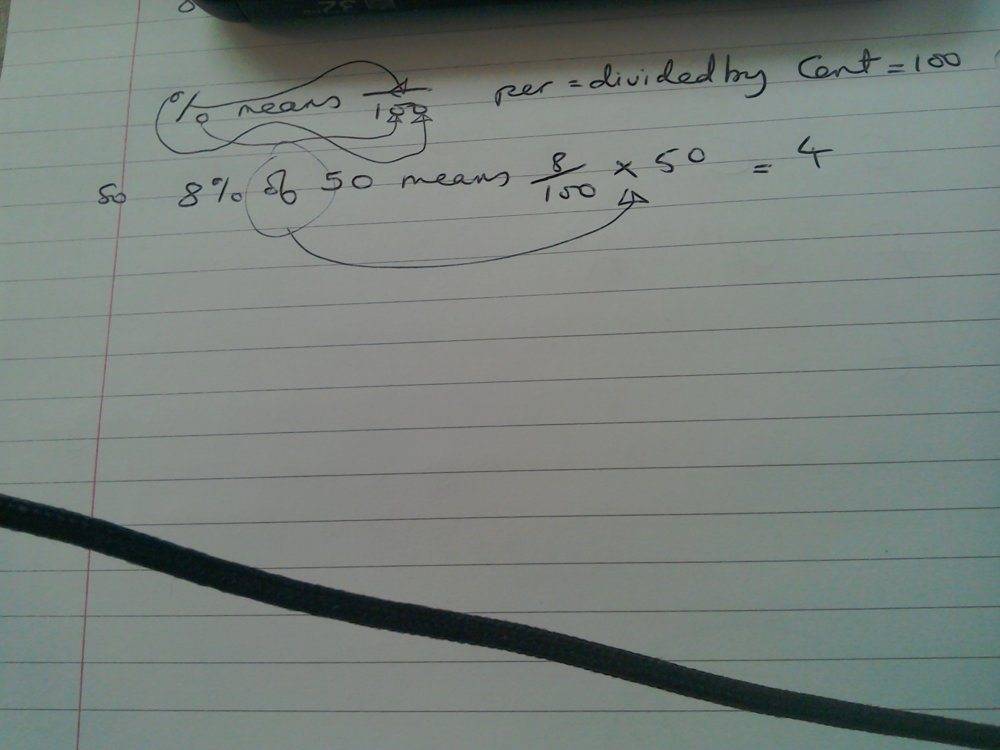 % means /100 per = divided by Cent = 100
So 8% of 50 means 8/100 × 50 = 4